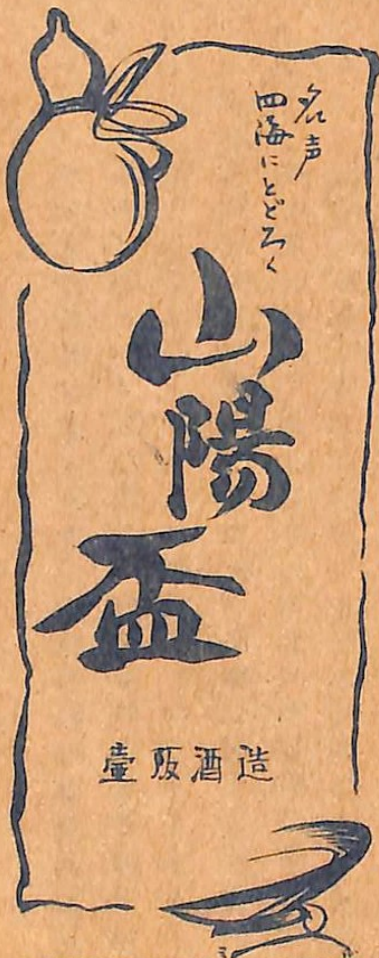 名声
四海にとどろく
山陽盃
壷阪酒造